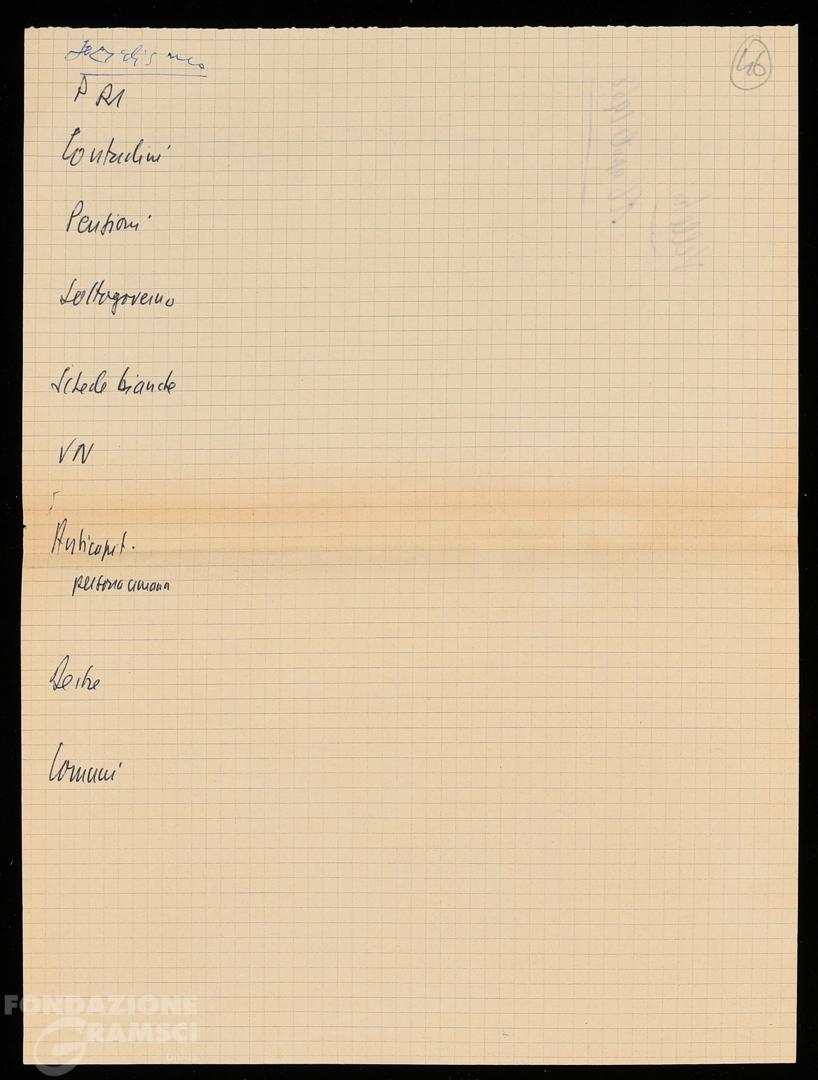 46
Socialismo
PRI
Contadini
Pensioni
Sottogoverno
Schede bianche
VN
Anticapit.
persona umana
Destre
Comuni
FONDAZIONE
GRAMSCI